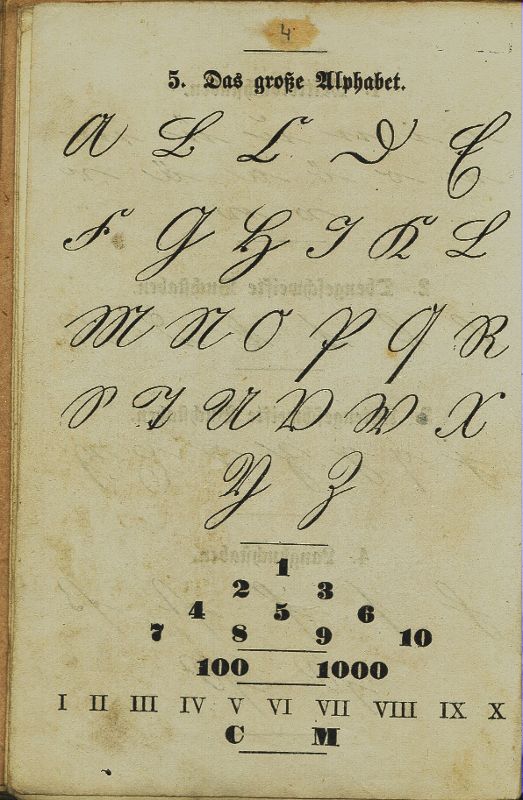 4
5. Das große Alphabet.
A B C D E
F G H I K L
M N O P Q R
S T U V W X
Y Z
1
2 3
4 5 6
7 8 9 10
100 1000
I II III IV V VI VII VIII IX X
C M